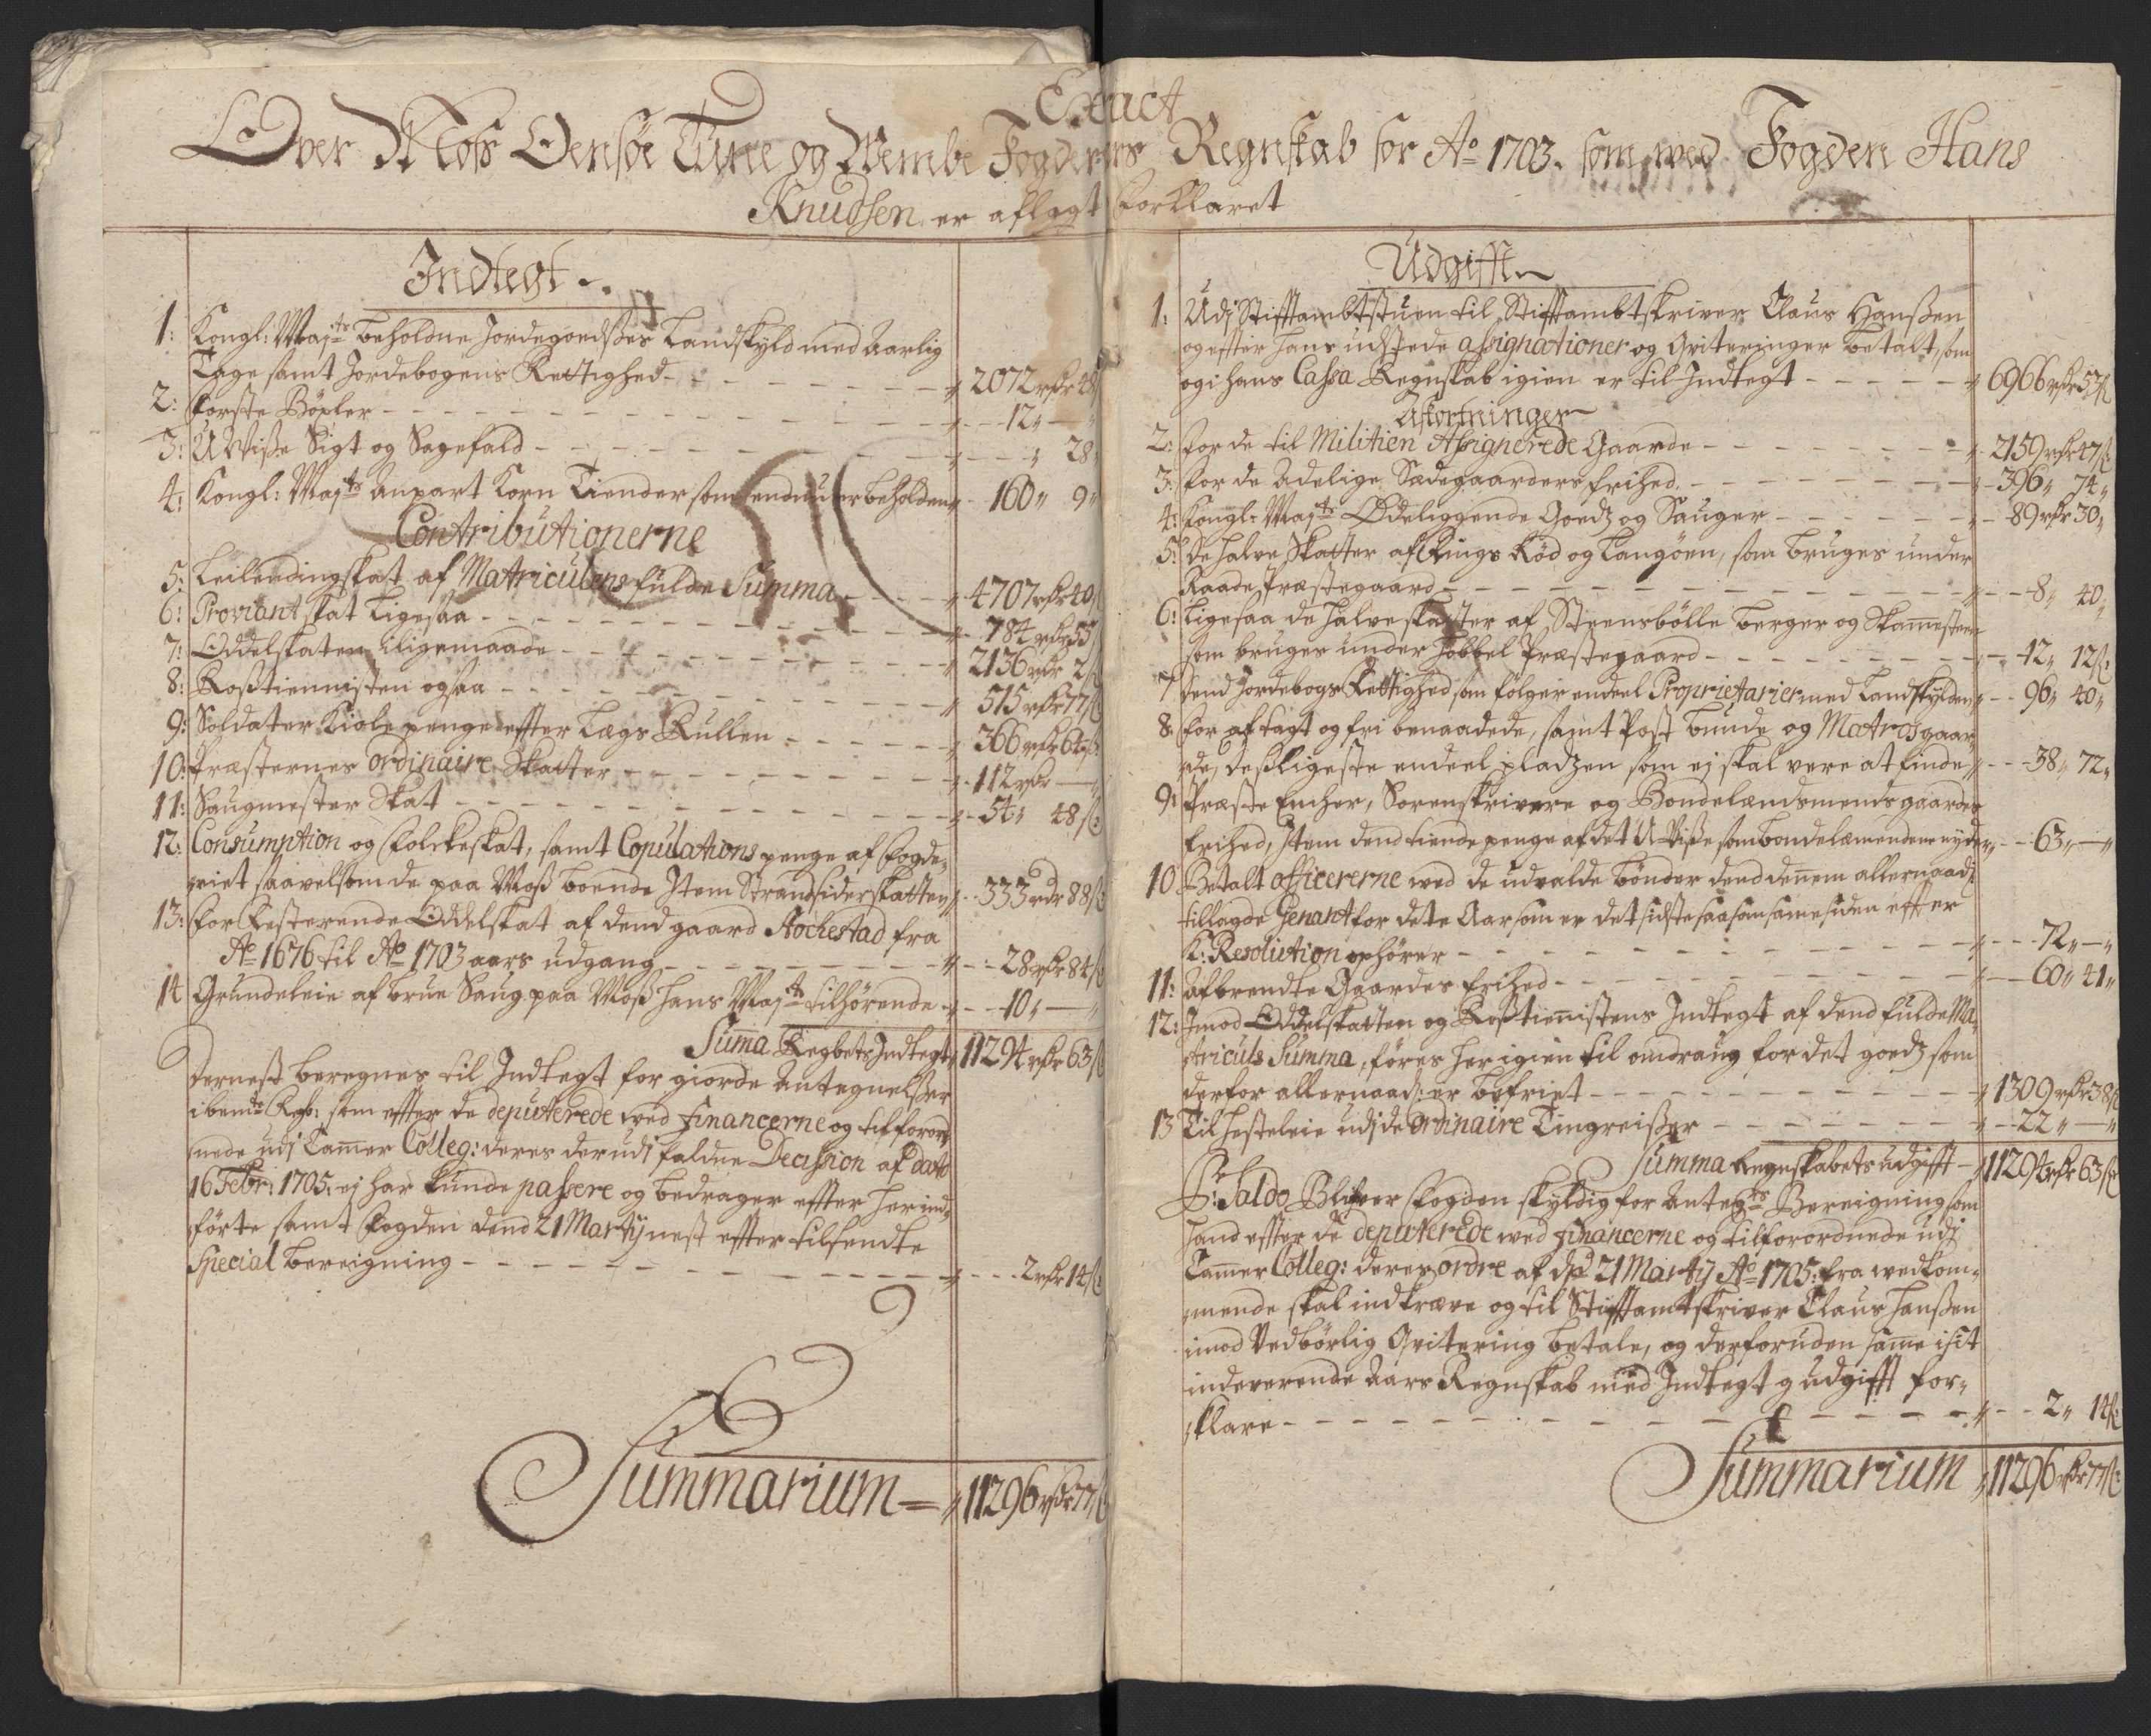 Exact
Over Moss Oensøe Tune og Wembe Fogderies Regnskab for Ao 1703. som wed Fogden Hans
Knudsen er aflagt Forklaret
Indtegt
1: Kongl: Maj:ts beholdne Jordegoedsses Landskyld med Aarlig
Tage samt Jordebogens Rettighed - 2072 rdr 48
2: Første Böxler - 12 „ -
3: UViße Sigt og Sagefald - „ 28
4: Kongl: Maj:ts Anpart Korn Tiender som endnu er beholden - 160 „ 9 „
Contributionerne
5: Leilendingskat af Matriculens fulde Summa - 4707 rdr 40 s
6: Proviantskat Ligesaa - 784 rdr 55
7: Oddelskaten Iligemaade - 2136 rdr 2 s
8: Roßtiennisten ogsaa - 515 rdr 77 s
9: Soldater Kiolepenge effter Lægs Rullen - 366 rdr 64 s:
10: Præsternes ordinaire Skatter - 112 rdr -
11: Saugmester Skat - 54 „ 48 s:
12: Consumption og Folckeskat, samt Copulations penge af Fogde„
riet saavelsom de paa Moß boende Item Strandsiderskatten - 333 rdr 88 s:
13: For Resterende Oddelskat af dend gaard Aochestad fra
Ao 1676 til Ao 1703 aars udgang - 28 rdr 84 s:
14 Grundeleie af brue Saug paa Moß Hans Maj:ts tilhørende - 10 „ -
Suma Regbets Indtegt 11294 rdr 63 s
Dernest beregnes til Indtegt for giorde Antegnelsser
ibemte Regb: som effter de deputerede wed Financerne og tilforord
nede udj Camer Colleg: deres derudj faldne Decission af dato
16 Febr: 1705: ej har kunde passere og bedrager effter her ind„
førte samt Fogden dend 21 Martij nest effter tilsendte
Special bereigning - 2 rdr 14 s:
Summarium 11296 rdr 77 s
Udgifft
1: Udj Stifftambtstuen til Stifftambtskriver Claus Hanßen
og effter hans udstede assignationer og Qviteringer betalt, som
og i hans Cassa Regnskab igien er til Indtegt - 6966 rdr 57 s
Afkortninger
2: For de til Militien Assignerede Gaarde - 2159 rdr 47 s:
3: For de Adelige Sædegaardes frihed - 396 „ 74 „
4: Kongl: Maj:ts Ødeliggende Goedz og Sauger - 89 rdr 30 „
5: De halve Skatter af Rings Röd og Langöen, som bruges under
Raade Præstegaard - 8 „ 40 „
6: Ligesaa de halve skatter af Steensbölle berger og Skamesteen
som bruges under Hobbel Præstegaard - 12 „ 12 s:
7 Dend Jordebogs Rettighed som følger endeel Proprietarier med Landskylden - 96 „ 40 „
8: For aftagt og fri benaadede, samt Post bunde og Matrosgaar„
de, desligeste endeel pladzen som ej skal vere at finde - 38 „ 72 „
9: Præste Encher, Sorenskrivere og Bondelændsmends gaardes
frihed, Item dend tiende penge af det UViße som bondelænsmendene nyder - 63 „ - „
10 Betalt officererne wed de udvalde bönder dend dennem allernaad:
tillagde Genant for dete Aar som er det sidste saasom same siden effter
K: Resolution ophörer - 72 „ - „
11: Afbrendte Gaardes frihed - 60 „ 41 „
12: Imod Oddelskatten og Roßtienistens Indtegt af dend fulde Ma„
triculs Summa, föres her igien til omdraug for det goedz som
derfor allernaad: er befriet - 1309 rdr 38 s
13 Til Hesteleie udj de ordinaire Tingreißer - 22 „ - „
Summa Regnskabets udgifft - 11294 rdr 63 s
Pr: Saldo Blifver Fogden skyldig for Antegts Bereigning som
hand effter de deputerede wed Financerne og tilforordnede udj
Camer Colleg: deres ordre af dto 21 Martij Ao 1705: fra wedkom„
mende skal indkræve og til Stifftamtskriver Claus Hanßen
imod Vedbörlig Qvitering betale, og derforuden same i sit
indeverende Aars Regnskab med Indtegt og udgifft for„
klare - 2 „ 14 s:
Summarium 11296 rdr 77 s: